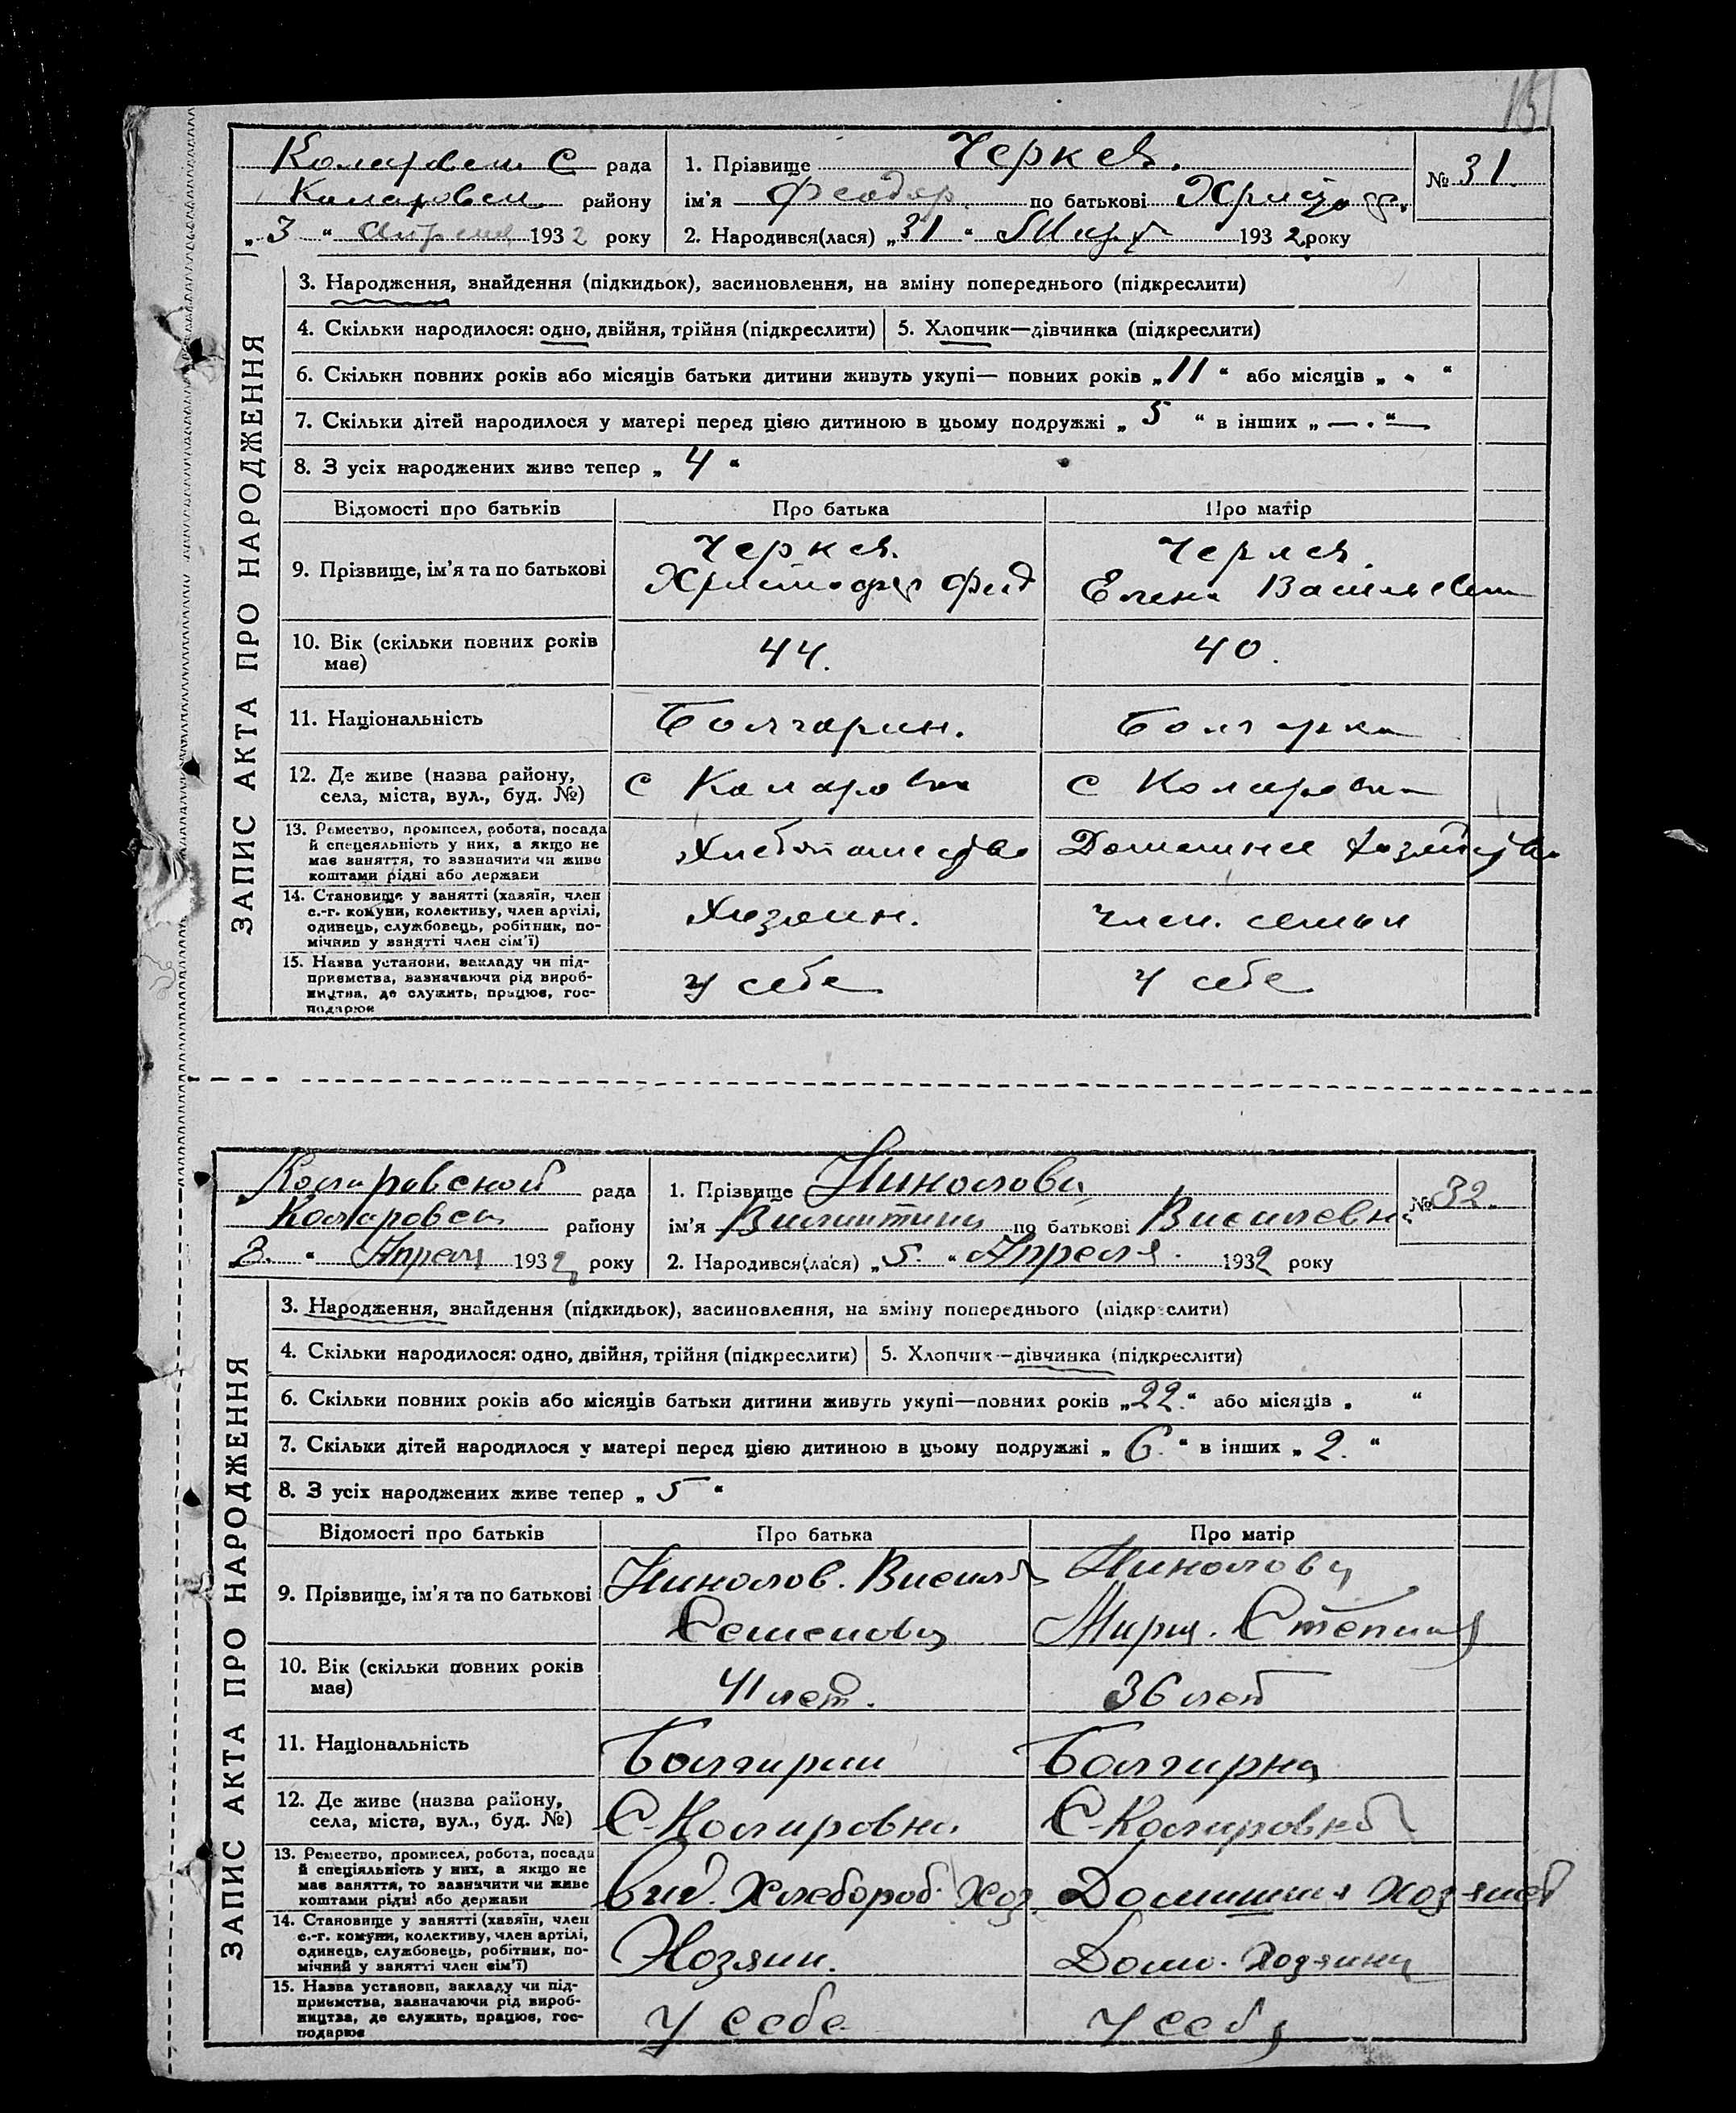 151
Коларовск С рада
Коларовск району
„3“ Апреля 1932 року
1. Прізвище Черкев.
ім'я Феодор по батькові Христоф.
2. Народився(лася) „31“ Март 1932 року
№ 31.
ЗАПИС АКТА ПРО НАРОДЖЕННЯ
3. Народження, знайдення (підкидьок), засиновлення, на зміну попереднього (підкреслити)
4. Скільки народилося: одно, двійня, трійня (підкреслити) 5. Хлопчик—дівчинка (підкреслити)
6. Скільки повних років або місяців батьки дитини живуть укупі— повних років „11“ або місяців „-“
7. Скільки дітей народилося у матері перед цією дитиною в цьому подружжі „5“ в інших „—“
8. З усіх народжених живе тепер „4“
Відомості про батьків Про батька Про матір
9. Прізвище, ім'я та по батькові
Черкев. Черкев.
Христофор Фед Елена Васильевна
10. Вік (скільки повних років має) 44. 40.
11. Національність Болгарин. Болгарка
12. Де живе (назва району, села, міста, вул., буд. №) с Коларовка с Коларовка
13. Ремество, промисел, робота, посада й спеціяльність у них, а якщо не має заняття, то зазначити чи живе коштами рідні або держави Хлебопашество Домашнее хозяйство
14. Становище у занятті (хазяїн, член с.-г. комуни, колективу, член артілі, одинець, службовець, робітник, помічник у занятті член сім'ї) Хозяин. член. семьи
15. Назва установи, закладу чи підприємства, зазначаючи рід виробництва, де служить, працює, господарює у себе у себе
Коларовской рада
Коларовск району
Апреля 1932 року
1. Прізвище Николова
ім'я Валентина по батькові Васильевна
2. Народився(лася) „5.“ Апреля 1932 року
№ 32.
ЗАПИС АКТА ПРО НАРОДЖЕННЯ
3. Народження, знайдення (підкидьок), засиновлення, на зміну попереднього (підкреслити)
4. Скільки народилося: одно, двійня, трійня (підкреслити) 5. Хлопчик—дівчинка (підкреслити)
6. Скільки повних років або місяців батьки дитини живуть укупі—повних років „22.“ або місяців „ “
7. Скільки дітей народилося у матері перед цією дитиною в цьому подружжі „6.“ в інших „2.“
8. З усіх народжених живе тепер „5“
Відомості про батьків Про батька Про матір
9. Прізвище, ім'я та по батькові
Николов. Василь Николова
Семенович Мария. Степан
10. Вік (скільки повних років має) 41 лет. 36 лет
11. Національність Болгарин Болгарка
12. Де живе (назва району, села, міста, вул., буд. №) С-Коларовка С-Коларовка
13. Ремество, промисел, робота, посада й спеціяльність у них, а якщо не має заняття, то зазначити чи живе коштами рідні або держави Хлебороб. Хоз. Домашния хозяист
14. Становище у занятті (хазяїн, член с.-г. комуни, колективу, член артілі, одинець, службовець, робітник, помічний у занятті член сім'ї) Хозяин. Домо. Хозяина
15. Назва установи, закладу чи підприємства, зазначаючи рід виробництва, де служить, працює, господарює У себе У себя